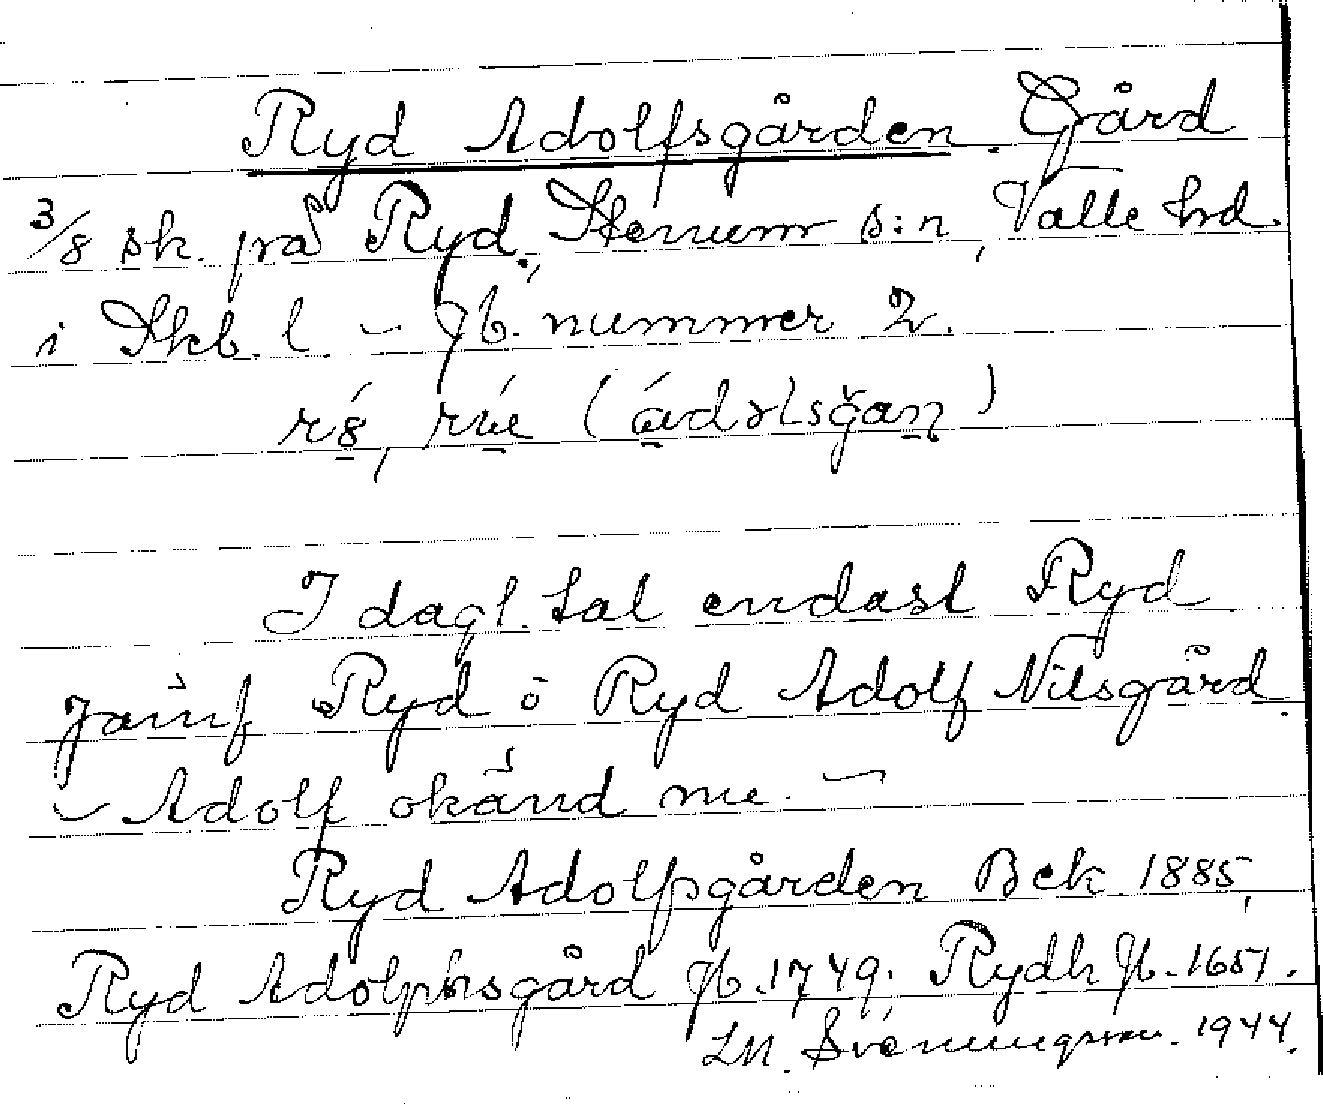 Ryd Adolfsgården. Gård
3/8 sk. från Ryd, Stenum s:n, Valle hrd.
i Skb. l. – Jb. nummer 2.
I dagl. tal endast Ryd
jämf Ryd o Ryd Adolf Nilsgård.
– Adolf okänd nu. –
Ryd Adolfsgården Bek 1885,
Ryd Adolphsgård Jb. 1749, Rydh Jb. 1651.
LM. Svenungsson. 1944.